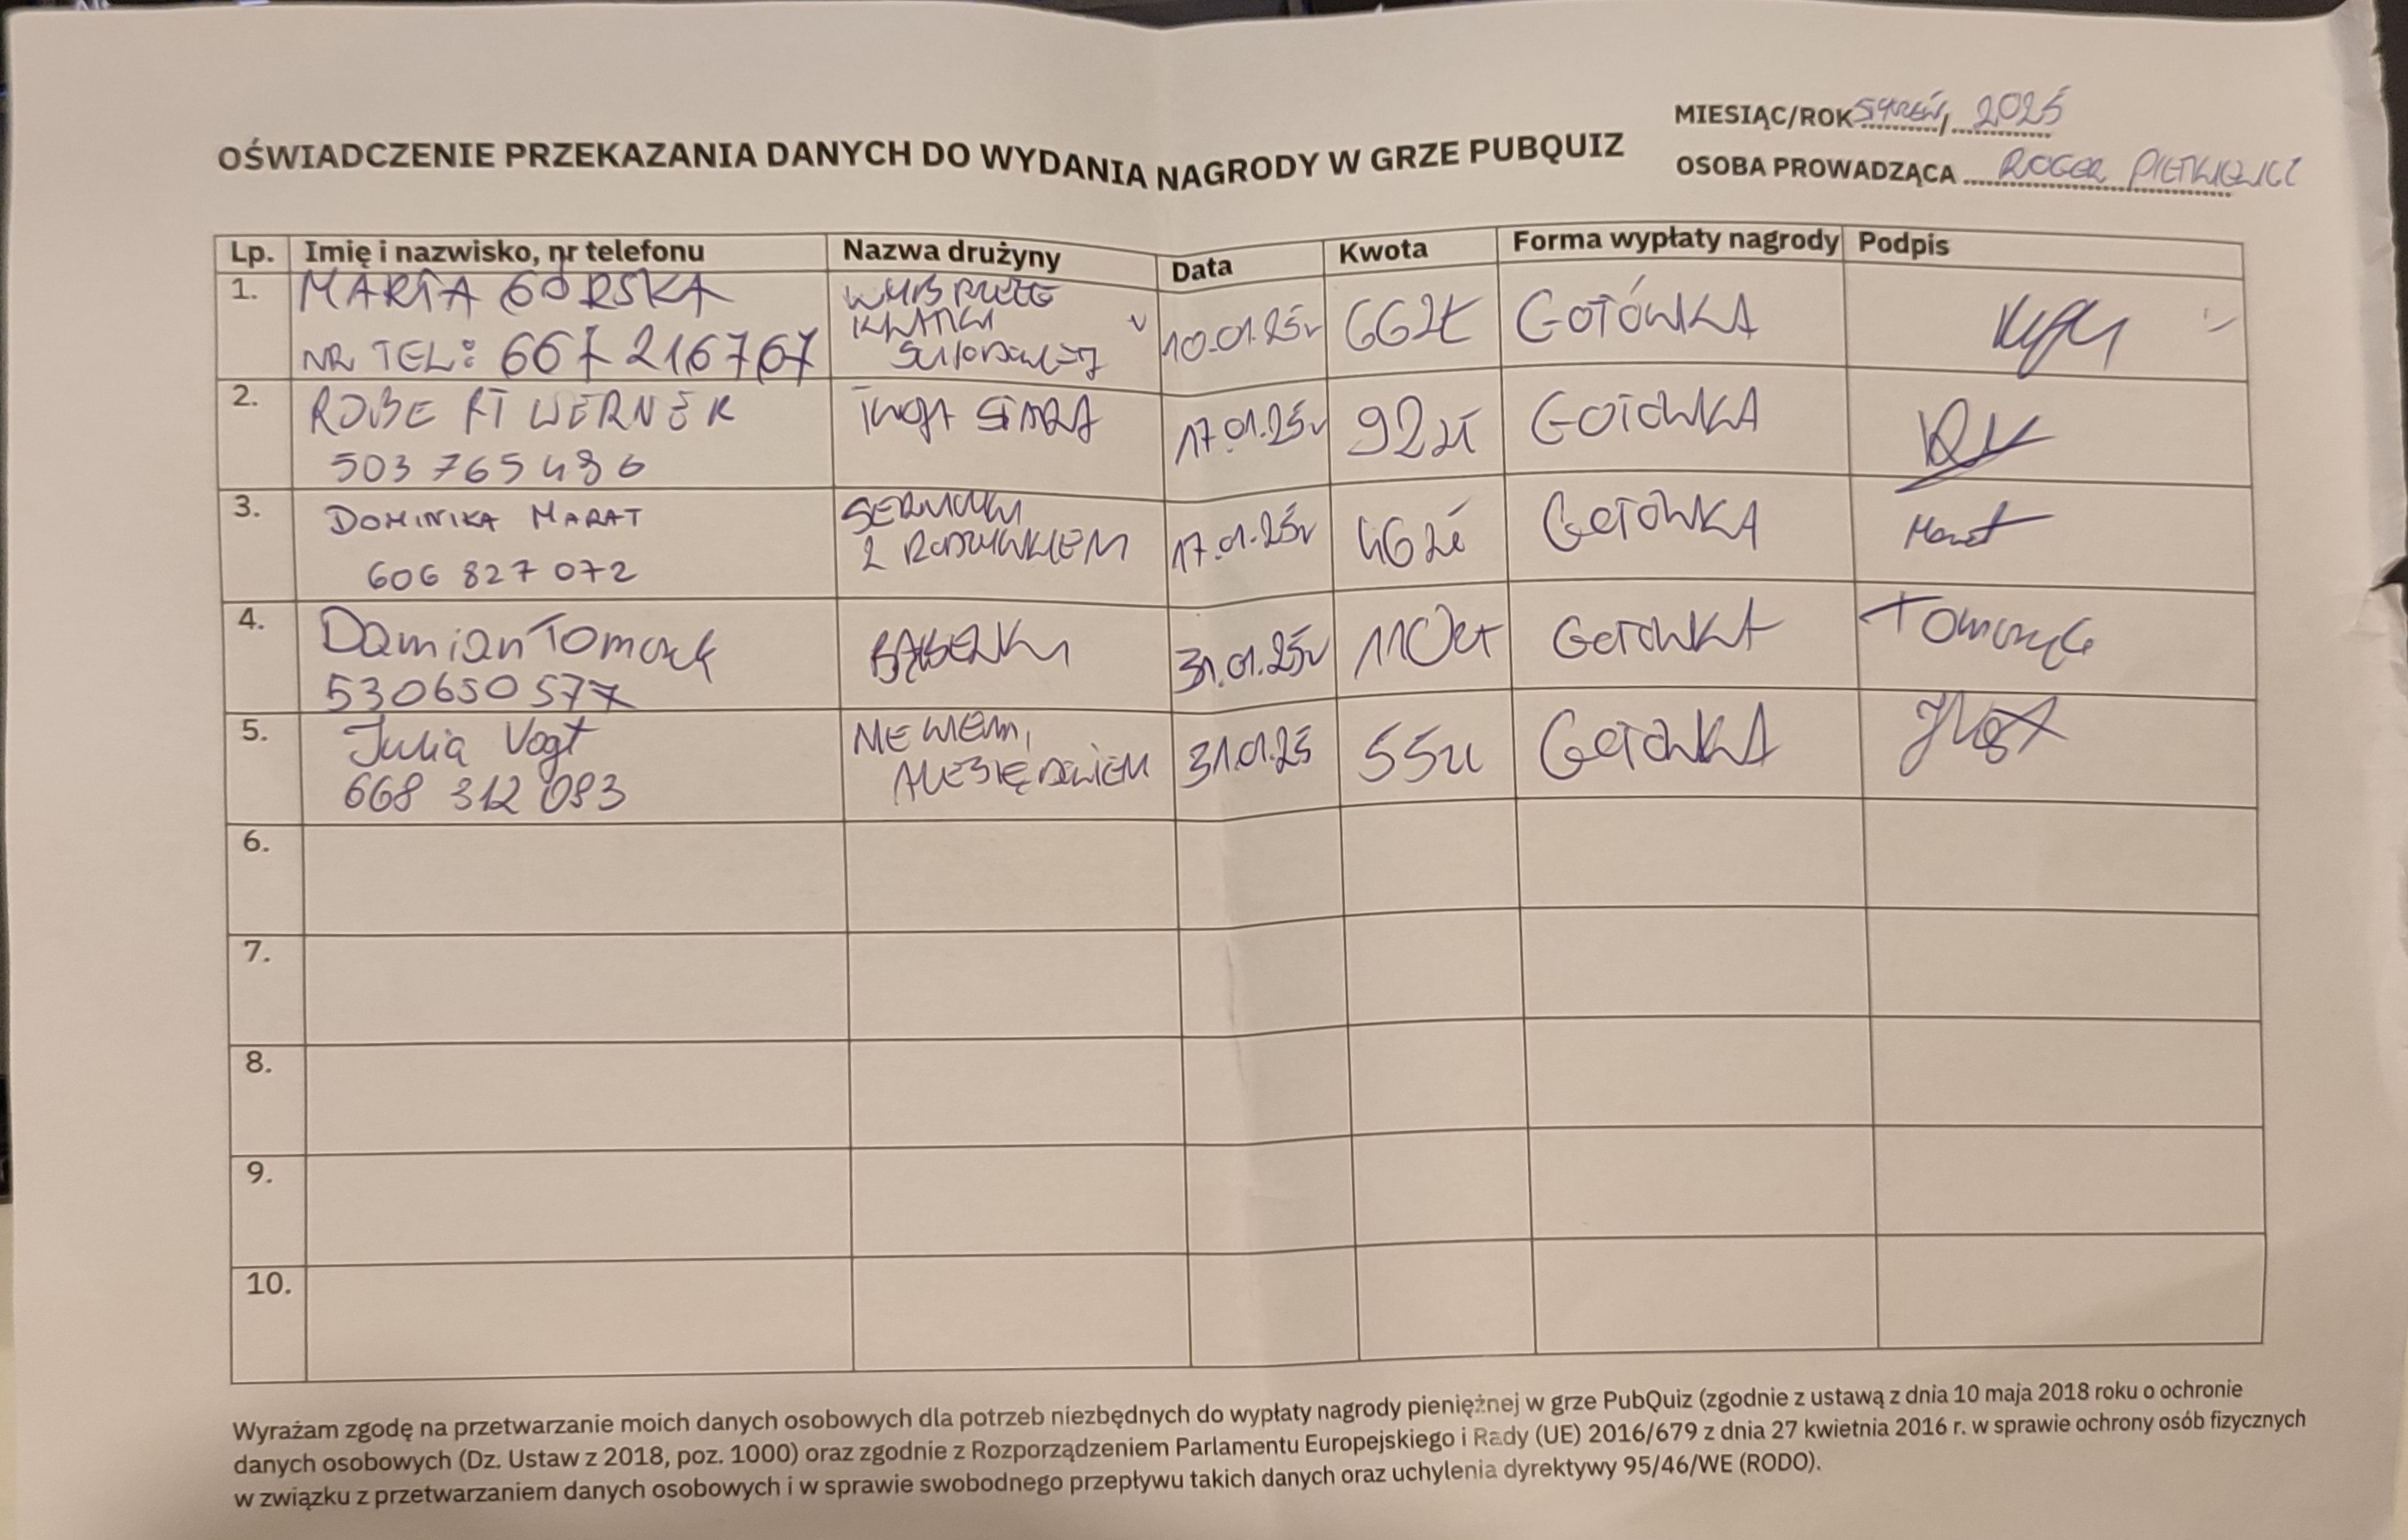 MIESIĄC/ROK STYCZEŃ, 2025
OŚWIADCZENIE PRZEKAZANIA DANYCH DO WYDANIA NAGRODY W GRZE PUBQUIZ
OSOBA PROWADZĄCA ROGER PIETKIEWICZ
Lp. Imię i nazwisko, nr telefonu Nazwa drużyny Data Kwota Forma wypłaty nagrody Podpis
1. MARTA GÓRSKA WYBRZEŻE
KLATKI
NR TEL: 667 216767 10.01.25r 66zł GOTÓWKA
2. ROBERT WERNER TWOJA STARA 17.01.25r 92zł GOTÓWKA
503 765 486
3. DOMINIKA MARAT SERNICZKI
Z RODZYNKIEM 17.01.25r 46zł GOTÓWKA Marat
606 827 072
4. Damian Tomczyk BĄBELKI 31.01.25r 110zł GOTÓWKA Tomczyk
530650577
5. Julia Vogt NIE WIEM,
ALE SIĘ DOWIEM 31.01.25 55zł GOTÓWKA JVogt
668 312 093
6.
7.
8.
9.
10.
Wyrażam zgodę na przetwarzanie moich danych osobowych dla potrzeb niezbędnych do wypłaty nagrody pieniężnej w grze PubQuiz (zgodnie z ustawą z dnia 10 maja 2018 roku o ochronie
danych osobowych (Dz. Ustaw z 2018, poz. 1000) oraz zgodnie z Rozporządzeniem Parlamentu Europejskiego i Rady (UE) 2016/679 z dnia 27 kwietnia 2016 r. w sprawie ochrony osób fizycznych
w związku z przetwarzaniem danych osobowych i w sprawie swobodnego przepływu takich danych oraz uchylenia dyrektywy 95/46/WE (RODO).